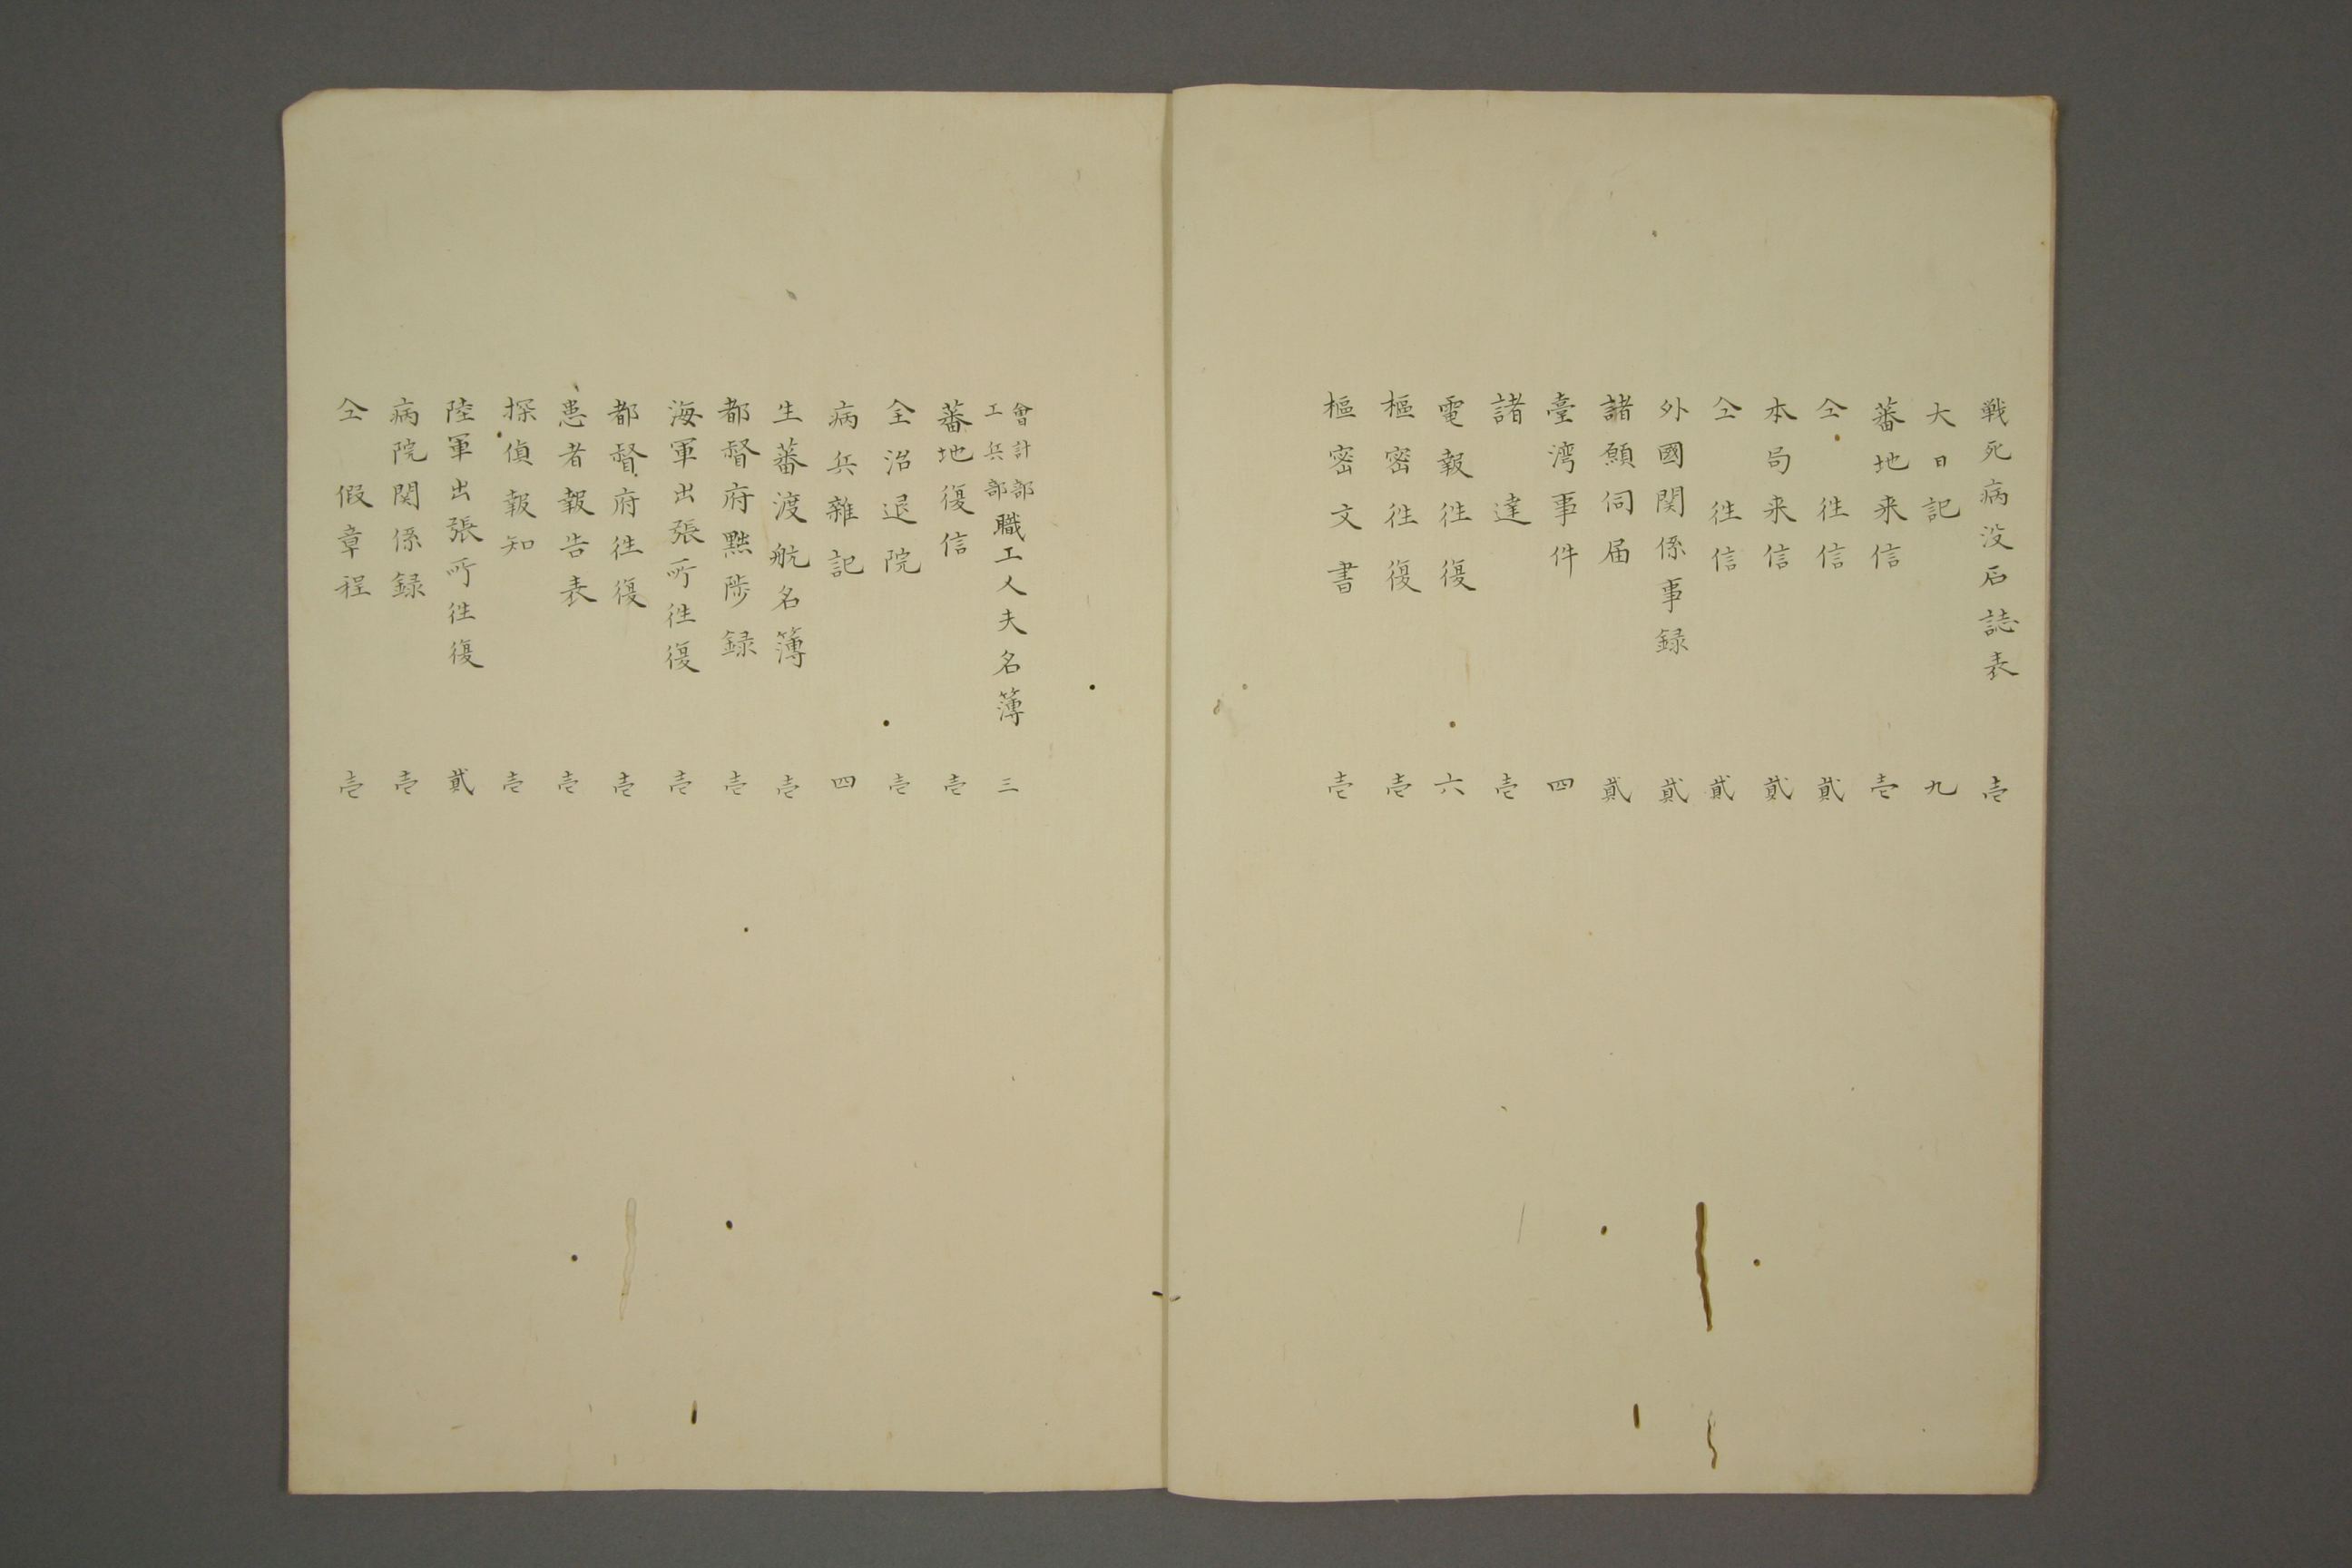 戦死病没石誌表 壱
大日記 九
蕃地来信 壱
仝 徃信 貳
本局来信 貳
仝 徃信 貳
外國関係事録 貳
諸願伺届 貳
臺湾事件 四
諸達 壱
電報徃復 六
樞密徃復 壱
樞密文書 壱
會計部
工兵部 職工人夫名簿 三
蕃地復信 壱
全治退院 壱
病兵雜記 四
生蕃渡航名簿 壱
都督府黜陟録 壱
海軍出張所徃復 壱
都督府徃復 壱
患者報告表 壱
探偵報知 壱
陸軍出張所徃復 貳
病院関係録 壱
仝假章程 壱